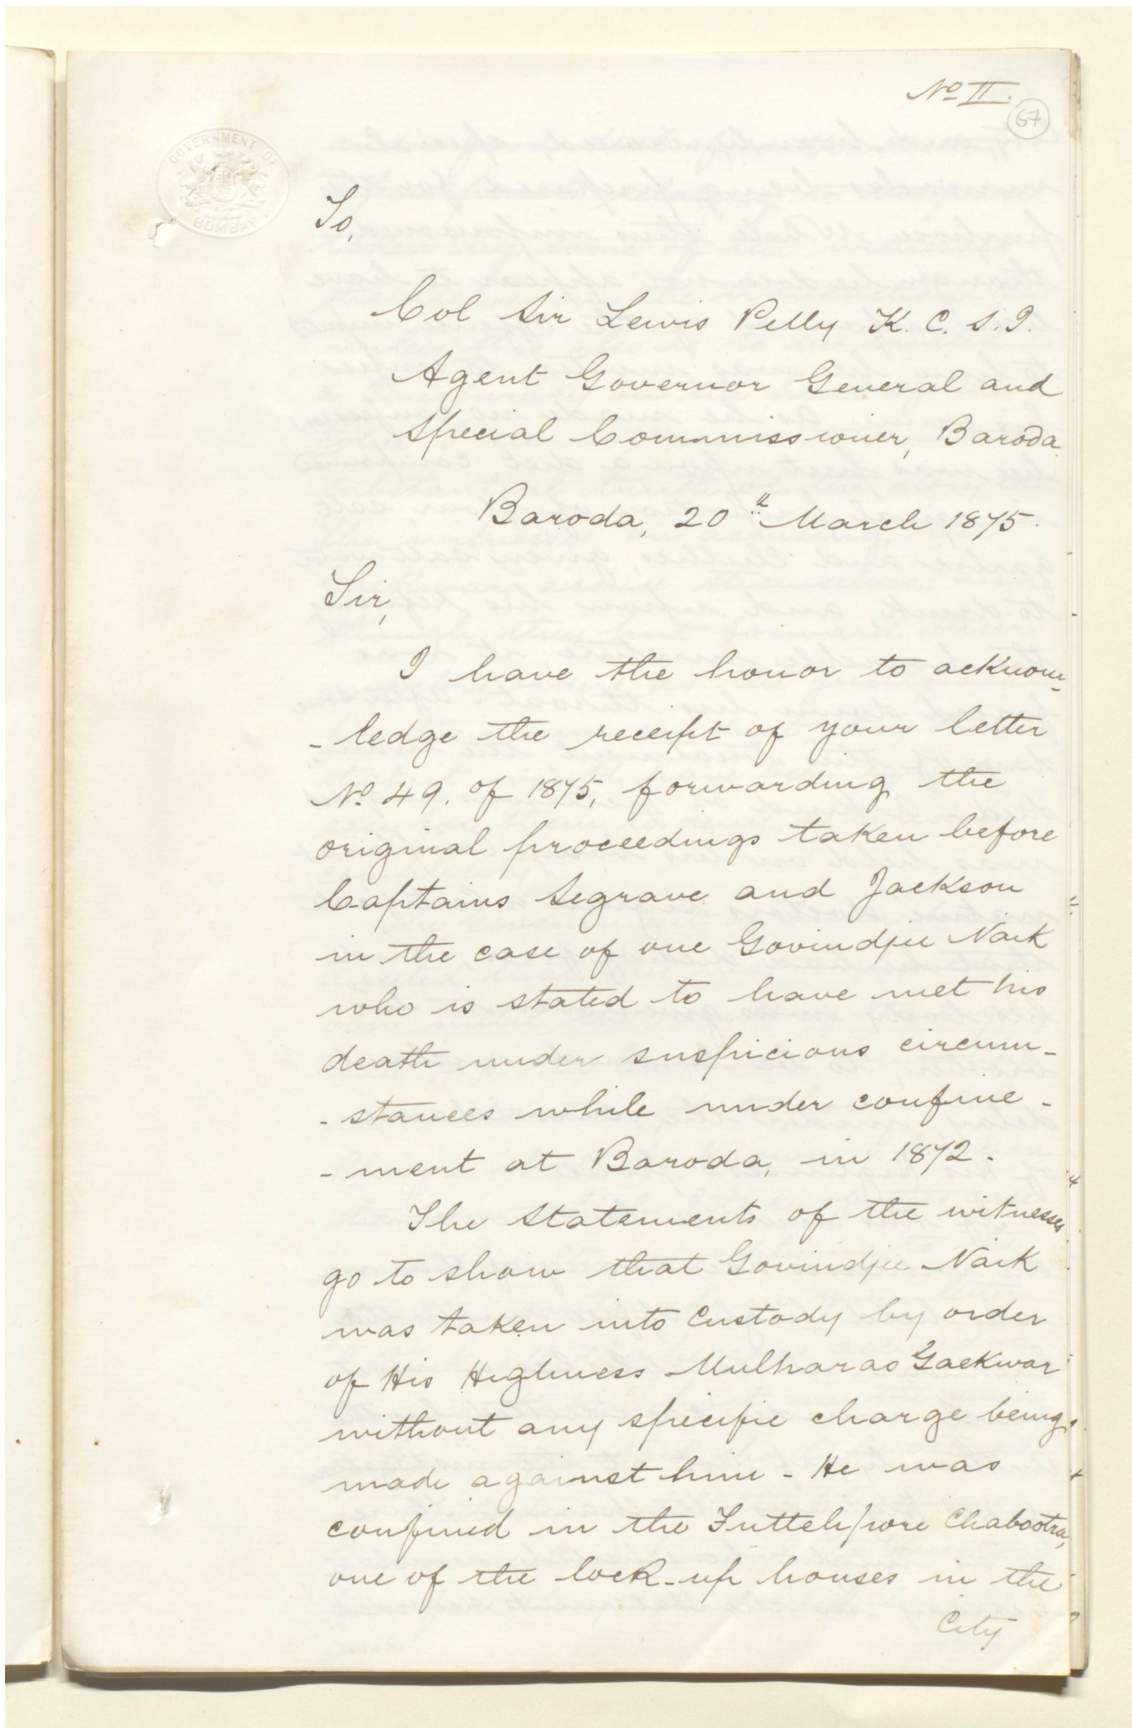 No II.
67
GOVERNMENT OF
BOMBAY
To,
Col Sir Lewis Pelly K. C. S. I.
Agent Governor General and
Special Commissioner, Baroda
Baroda, 20th March 1875.
Sir,
I have the honor to acknow-
- ledge the receipt of your letter
No 49. of 1875, forwarding the
original proceedings taken before
Captains Segrave and Jackson
in the case of one Govindjee Naik
who is stated to have met his
death under suspicious circum-
- stances while under confine -
- ment at Baroda, in 1872.
The statements of the witnesses
go to show that Govindjee Naik
was taken into custody by order
of His Highness Mulharao Gaekwar
without any specific charge being
made against him - He was
confined in the Futtehpore Chabootra,
one of the lock-up houses in the
City